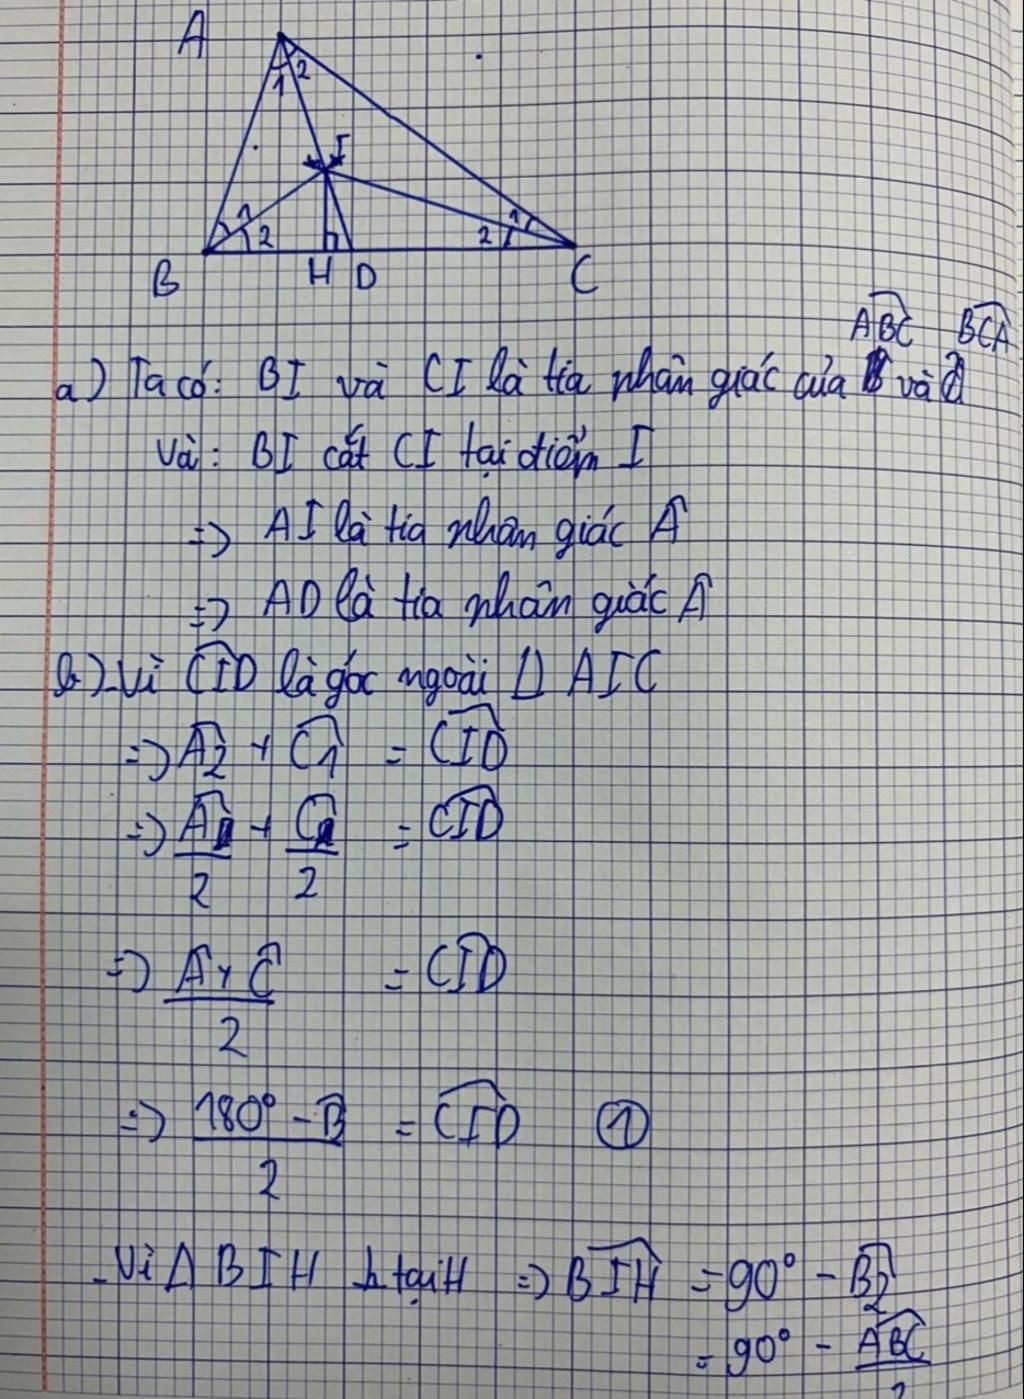 A
1 2
I
1 2
1 2
B H D C
ABC BCA
a) Ta có: BI và CI là tia phân giác của B và C
Và: BI cắt CI tại điểm I
=> AI là tia phân giác Â
=> AD là tia phân giác Â
b) - Vì CID là góc ngoài Δ AIC
=> A2 + C1 = CID
=> A/2 + C/2 = CID
=> (A + C)/2 = CID
=> (180° - B)/2 = CID ①
- Vì Δ BIH ⊥ tại H => BIH = 90° - B2
= 90° - ABC/2